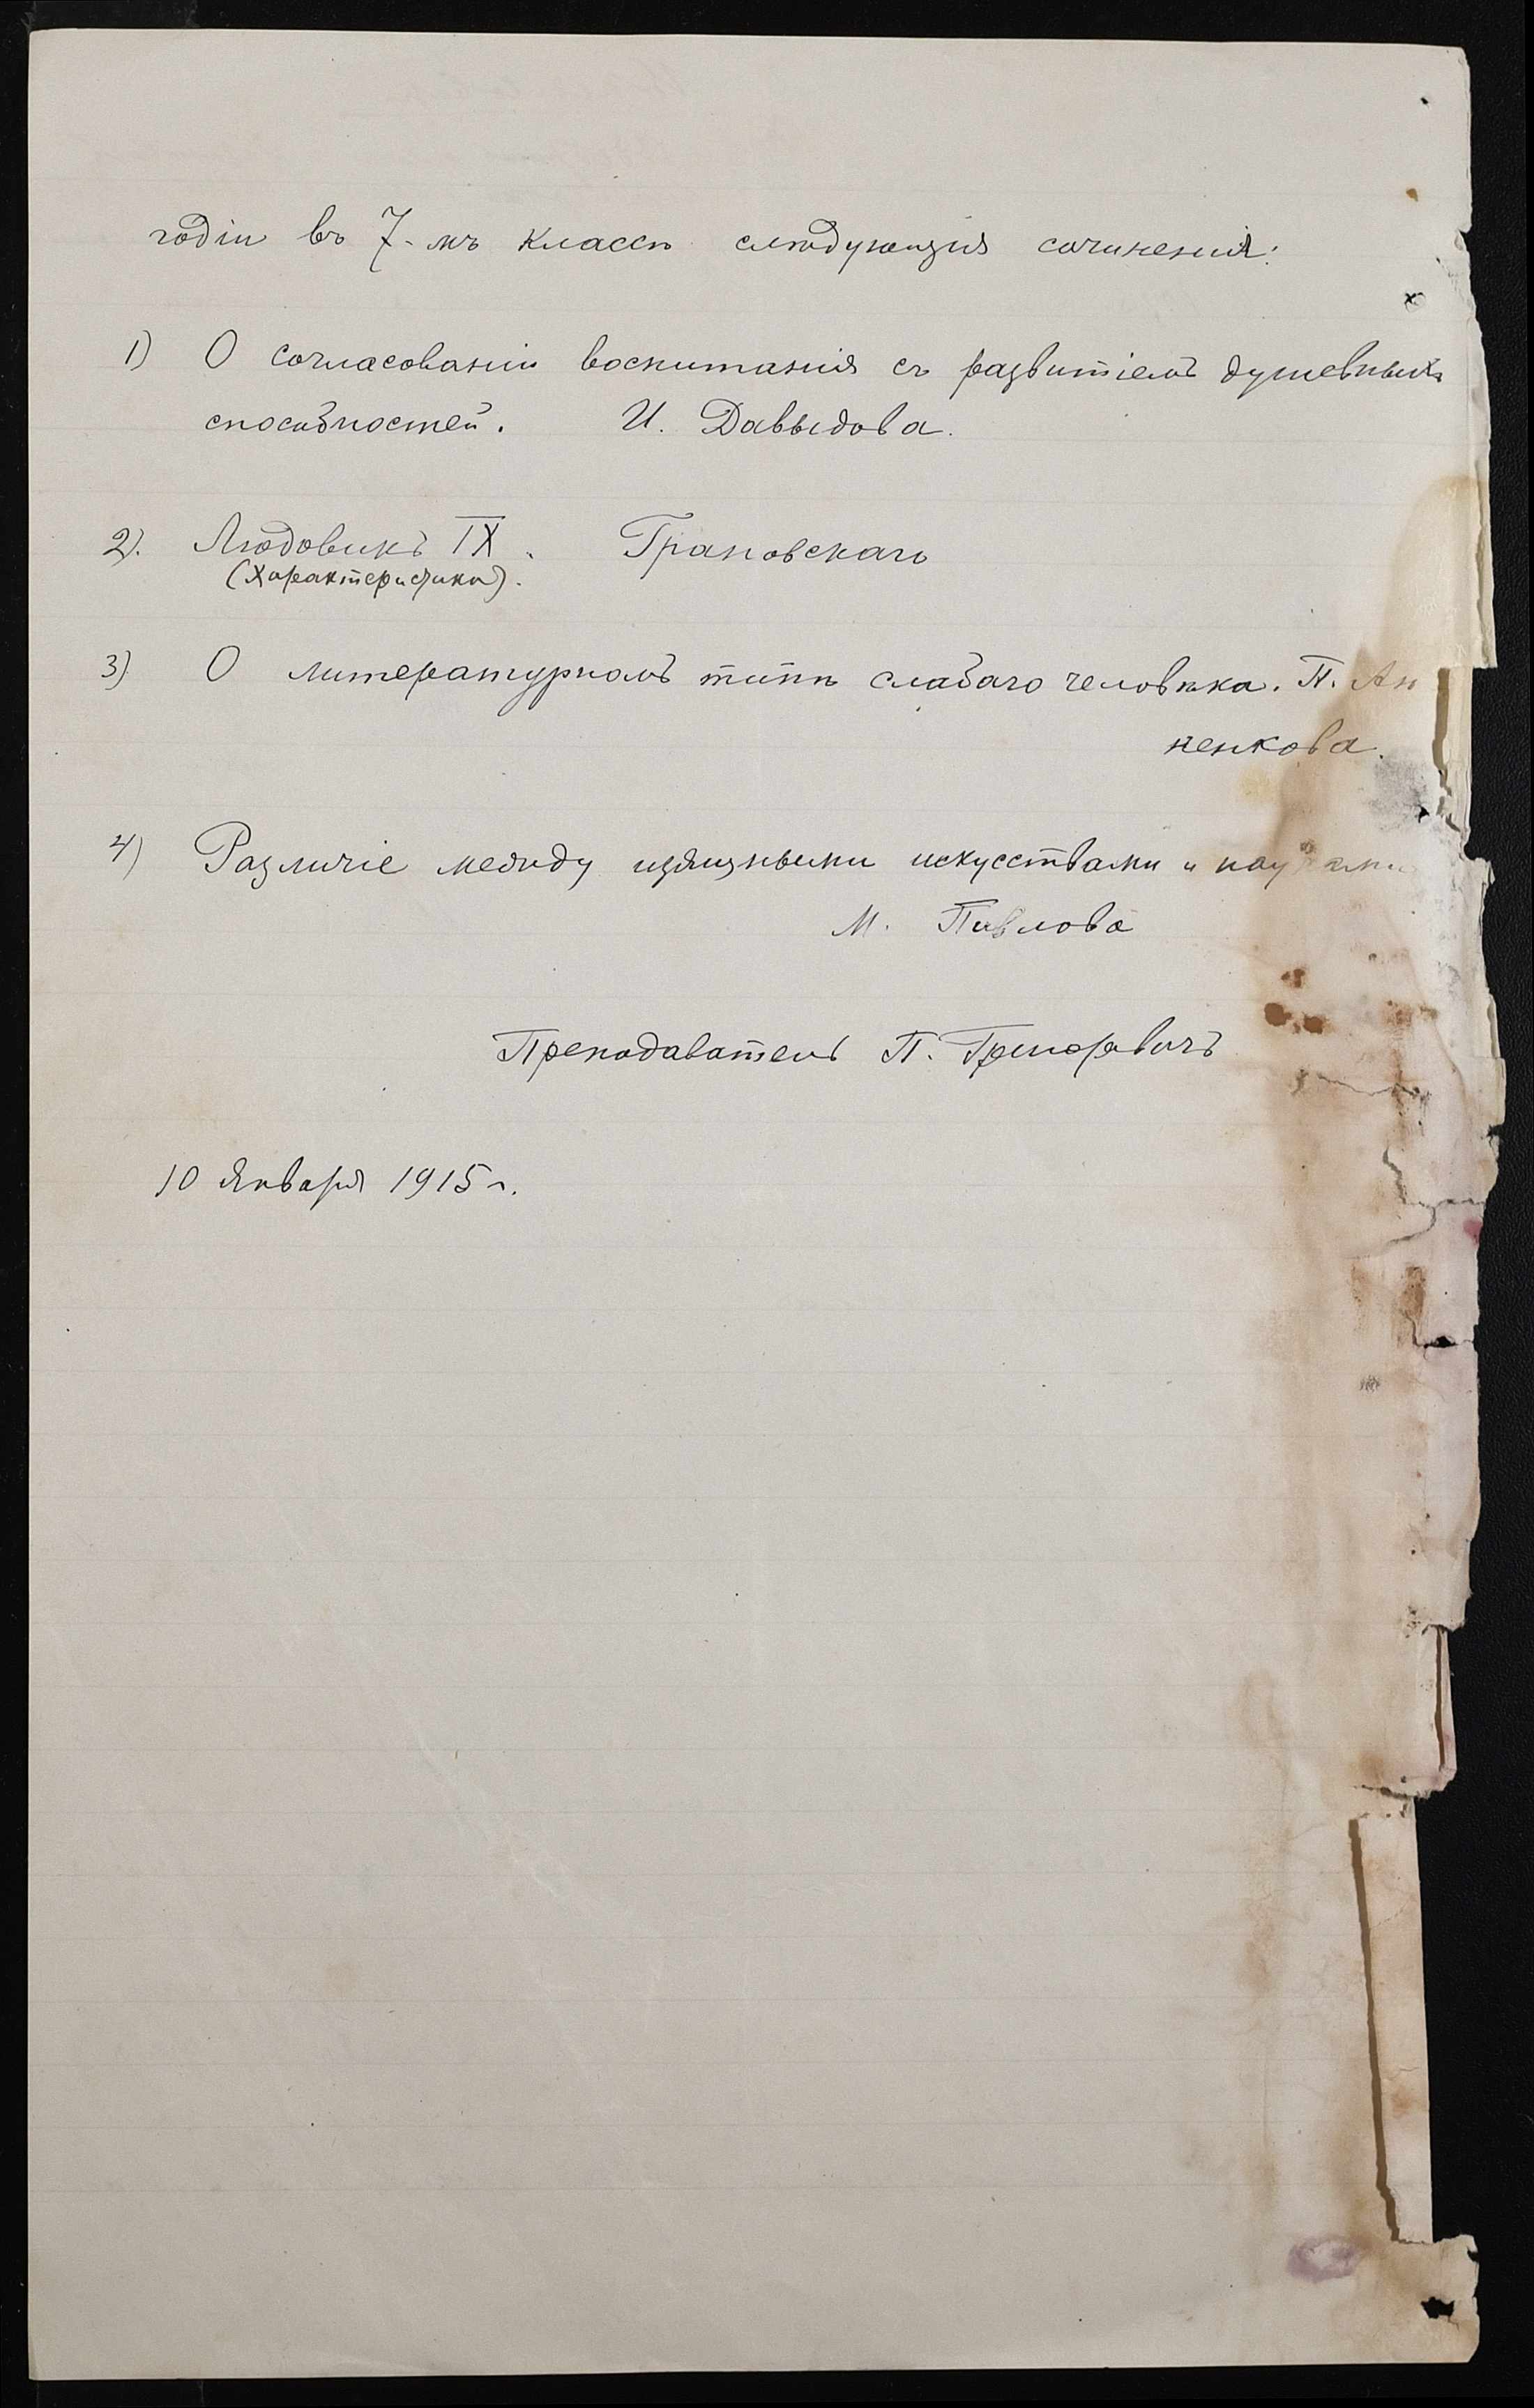 годіи въ 7-мъ классѣ слѣдующія сочиненія:
1) О согласованіи воспитанія съ развитіемъ душевныхъ
способностей. И. Давыдова.
2). Людовикъ IX. Грановскаго
(Характеристика).
3) О литературномъ типѣ слабаго человѣка. П. Ан
ненкова.
4) Различіе между изящными искусствами и науками
М. Павлова
Преподаватель П. Григоровичъ
10 Января 1915 г.